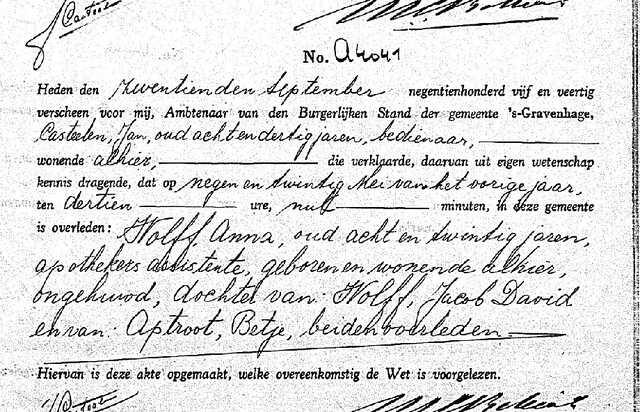 No. A4041
Heden den zeventienden September negentienhonderd vijf en veertig
verscheen voor mij, Ambtenaar van den Burgerlijken Stand der gemeente 's-Gravenhage,
Casteelen, Jan, oud acht en dertig jaren, bedienaar,
wonende alhier, die verklaarde, daarvan uit eigen wetenschap
kennis dragende, dat op negen en twintig Mei van het vorige jaar,
ten dertien ure, nul minuten, in deze gemeente
is overleden: Wolff, Anna, oud acht en twintig jaren,
apothekers assistente, geboren en wonende alhier,
ongehuwd, dochter van: Wolff, Jacob David
en van: Aptroot, Betje, beiden overleden.
Hiervan is deze akte opgemaakt, welke overeenkomstig de Wet is voorgelezen.